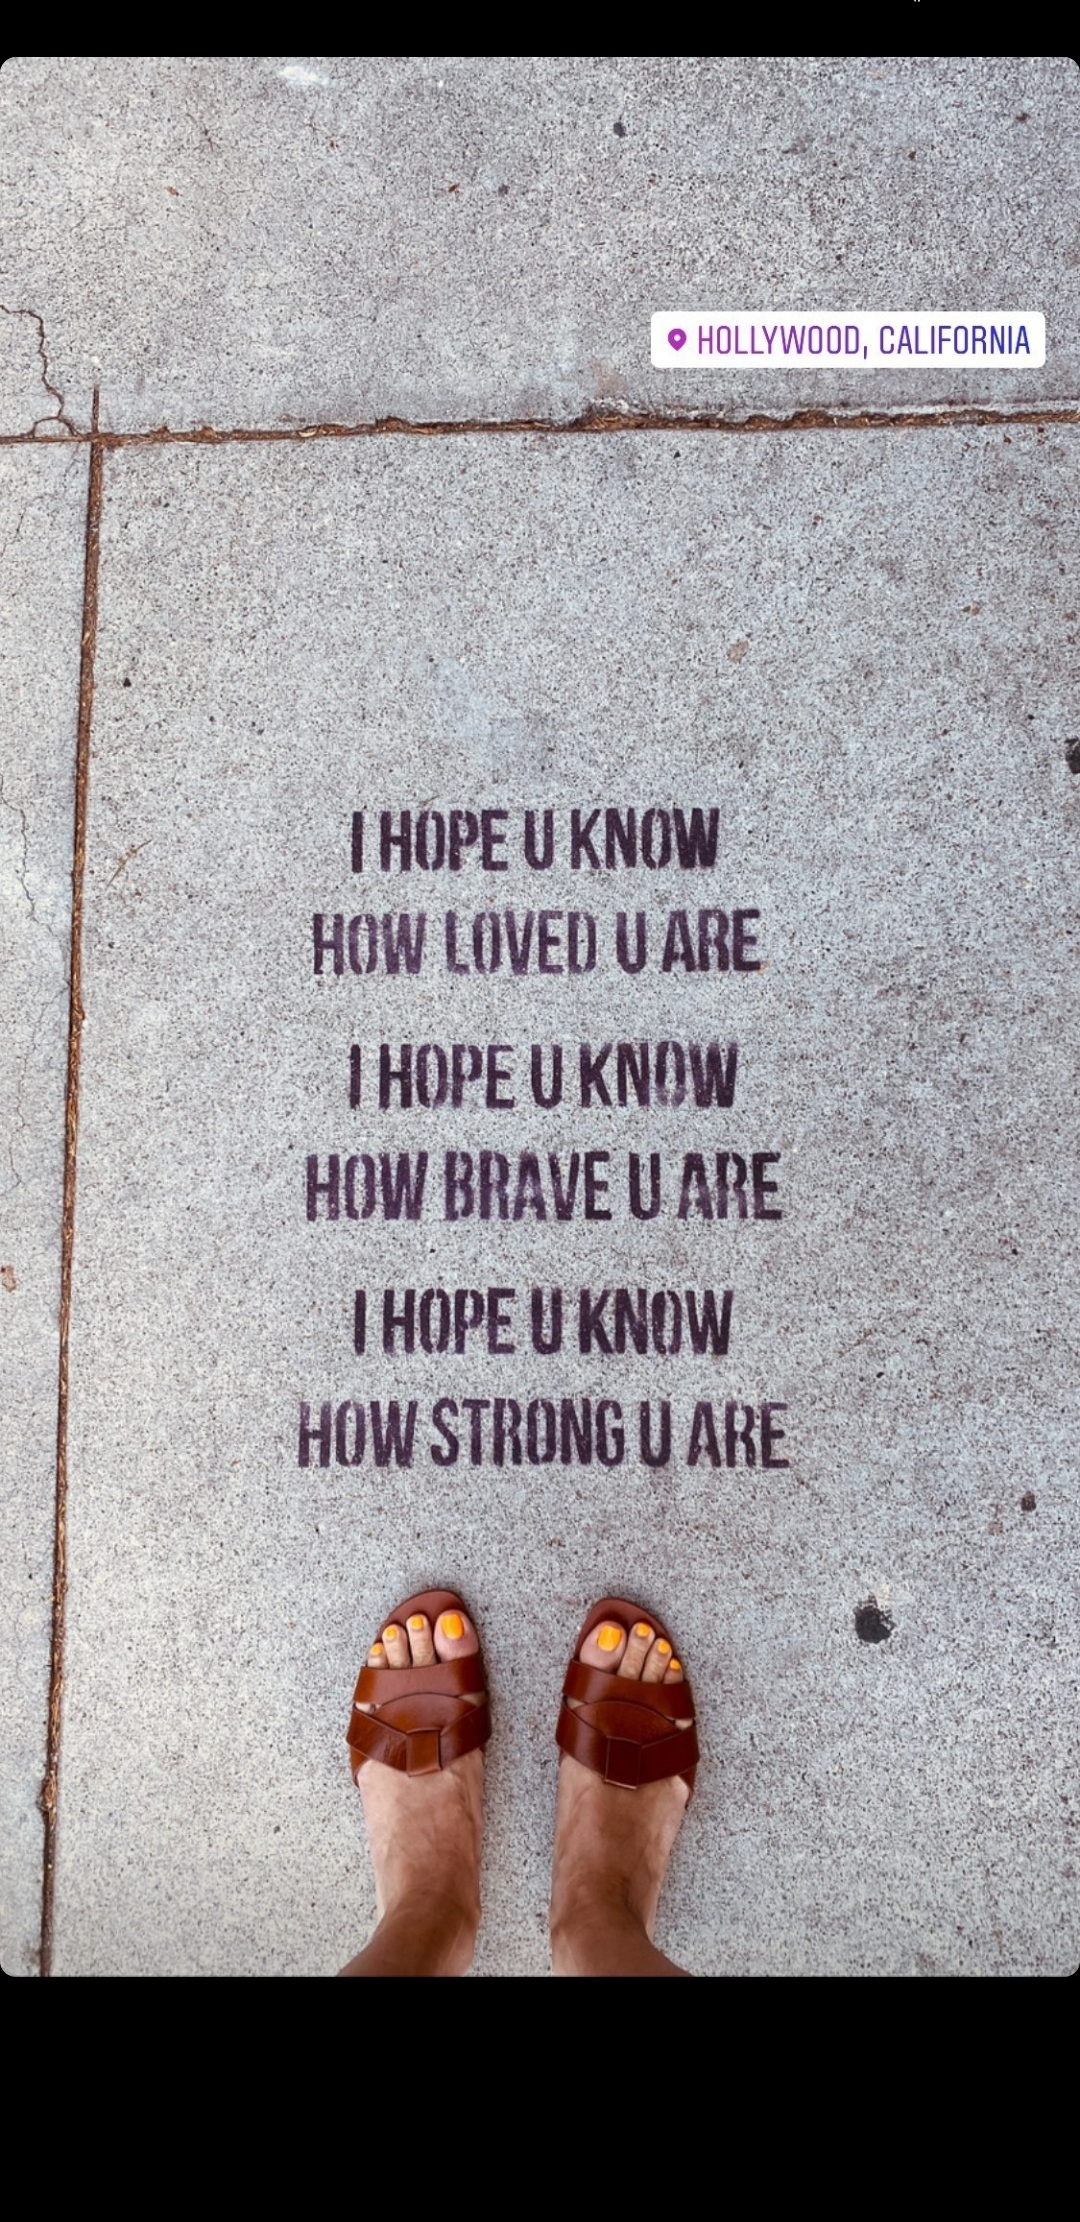 HOLLYWOOD, CALIFORNIA
I HOPE U KNOW
HOW LOVED U ARE
I HOPE U KNOW
HOW BRAVE U ARE
I HOPE U KNOW
HOW STRONG U ARE